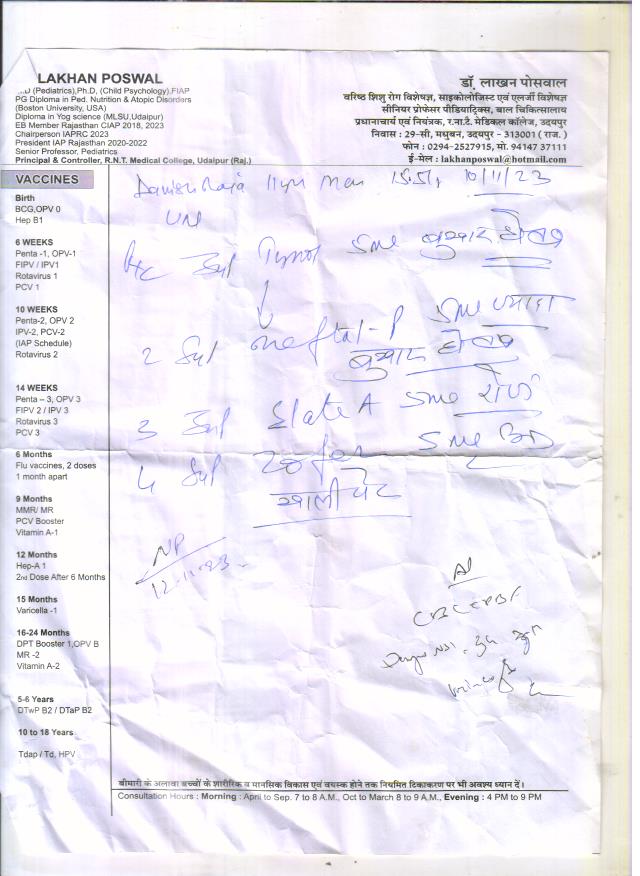 LAKHAN POSWAL
(Pediatrics),Ph.D, (Child Psychology),FIAP
PG Diploma in Ped. Nutrition & Atopic Disorders
(Boston University, USA)
Diploma in Yog science (MLSU,Udaipur)
EB Member Rajasthan CIAP 2018, 2023
Chairperson IAPRC 2023
President IAP Rajasthan 2020-2022
Senior Professor, Pediatrics
Principal & Controller, R.N.T. Medical College, Udaipur (Raj.)
डॉ. लाखन पोसवाल
वरिष्ठ शिशु रोग विशेषज्ञ, साइकोलोजिस्ट एवं एलर्जी विशेषज्ञ
सीनियर प्रोफेसर पीडियाट्रिक्स, बाल चिकित्सालय
प्रधानाचार्य एवं नियंत्रक, र.ना.टै. मेडिकल कॉलेज, उदयपुर
निवास : 29-सी, मधुबन, उदयपुर - 313001 ( राज. )
फोन : 0294-2527915, मो. 94147 37111
ई-मेल : lakhanposwal@hotmail.com
VACCINES
Birth
BCG,OPV 0
Hep B1
6 WEEKS
Penta -1, OPV-1
FIPV / IPV1
Rotavirus 1
PCV 1
10 WEEKS
Penta-2, OPV 2
IPV-2, PCV-2
(IAP Schedule)
Rotavirus 2
14 WEEKS
Penta – 3, OPV 3
FIPV 2 / IPV 3
Rotavirus 3
PCV 3
6 Months
Flu vaccines, 2 doses
1 month apart
9 Months
MMR/ MR
PCV Booster
Vitamin A-1
12 Months
Hep-A 1
2nd Dose After 6 Months
15 Months
Varicella -1
16-24 Months
DPT Booster 1,OPV B
MR -2
Vitamin A-2
5-6 Years
DTwP B2 / DTaP B2
10 to 18 Years
Tdap / Td, HPV
10/11/23
5ml बुखार होने पर
5ml ज्यादा
2 Syl Meftal-P
बुखार होने पर
3 Syl 5ml रोज
4 Syl 5ml BD
खाली पेट
NP
12-11-23
बीमारी के अलावा बच्चों के शारीरिक व मानसिक विकास एवं वयस्क होने तक नियमित टिकाकरण पर भी अवश्य ध्यान दें।
Consultation Hours : Morning : April to Sep. 7 to 8 A.M., Oct to March 8 to 9 A.M., Evening : 4 PM to 9 PM